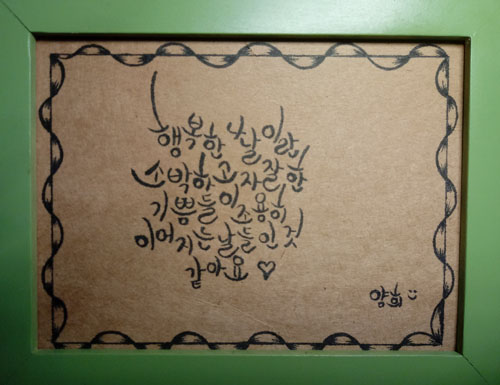 행복한 날이란
소박하고 자잘한
기쁨들이 조용히
이어지는 날들인 것
같아요 ♡
양희